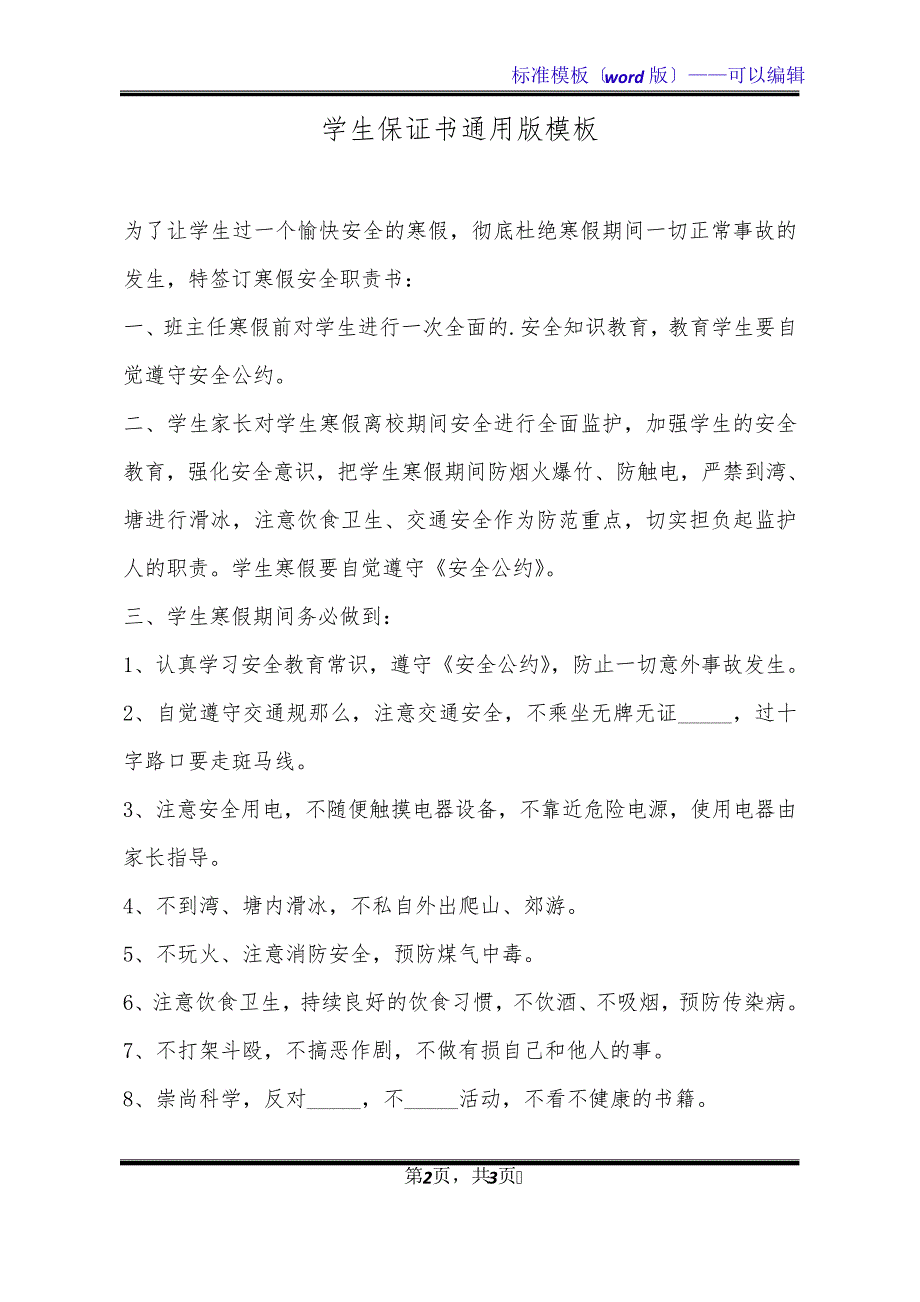 标准模板〔word 版〕——可以编辑
学生保证书通用版模板
为了让学生过一个愉快安全的寒假，彻底杜绝寒假期间一切正常事故的
发生，特签订寒假安全职责书：
一、班主任寒假前对学生进行一次全面的.安全知识教育，教育学生要自
觉遵守安全公约。
二、学生家长对学生寒假离校期间安全进行全面监护，加强学生的安全
教育，强化安全意识，把学生寒假期间防烟火爆竹、防触电，严禁到湾、
塘进行滑冰，注意饮食卫生、交通安全作为防范重点，切实担负起监护
人的职责。学生寒假要自觉遵守《安全公约》。
三、学生寒假期间务必做到：
1、认真学习安全教育常识，遵守《安全公约》，防止一切意外事故发生。
2、自觉遵守交通规那么，注意交通安全，不乘坐无牌无证_____，过十
字路口要走斑马线。
3、注意安全用电，不随便触摸电器设备，不靠近危险电源，使用电器由
家长指导。
4、不到湾、塘内滑冰，不私自外出爬山、郊游。
5、不玩火、注意消防安全，预防煤气中毒。
6、注意饮食卫生，持续良好的饮食习惯，不饮酒、不吸烟，预防传染病。
7、不打架斗殴，不搞恶作剧，不做有损自己和他人的事。
8、崇尚科学，反对_____，不_____活动，不看不健康的书籍。
第2页，共3页